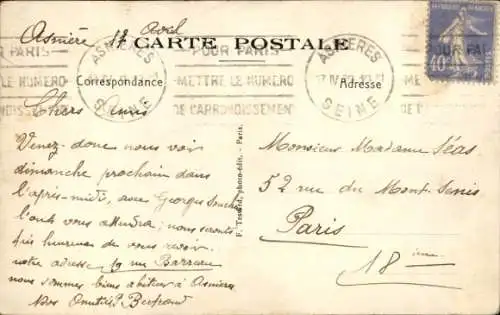 Asnières 17 Avril
CARTE POSTALE
Correspondance
Adresse
POUR PARIS
METTRE LE NUMERO
D'ARRONDISSEMENT
LE NUMERO
ASNIERES
SEINE
ASNIERES
17 IV
SEINE
POUR PAR
40c
Chers amis
Venez donc nous voir
dimanche prochain dans
l'après-midi, avec Georges
vous attendra; nous serons
très heureux de vous revoir.
notre adresse 19 rue Barreau
nous sommes bien à Asnières
Nos Amitiés Bertrand
F. Tessard, photo-édit. - Paris.
Monsieur Madame Séas
52 rue du Mont-Cenis
Paris
18ème